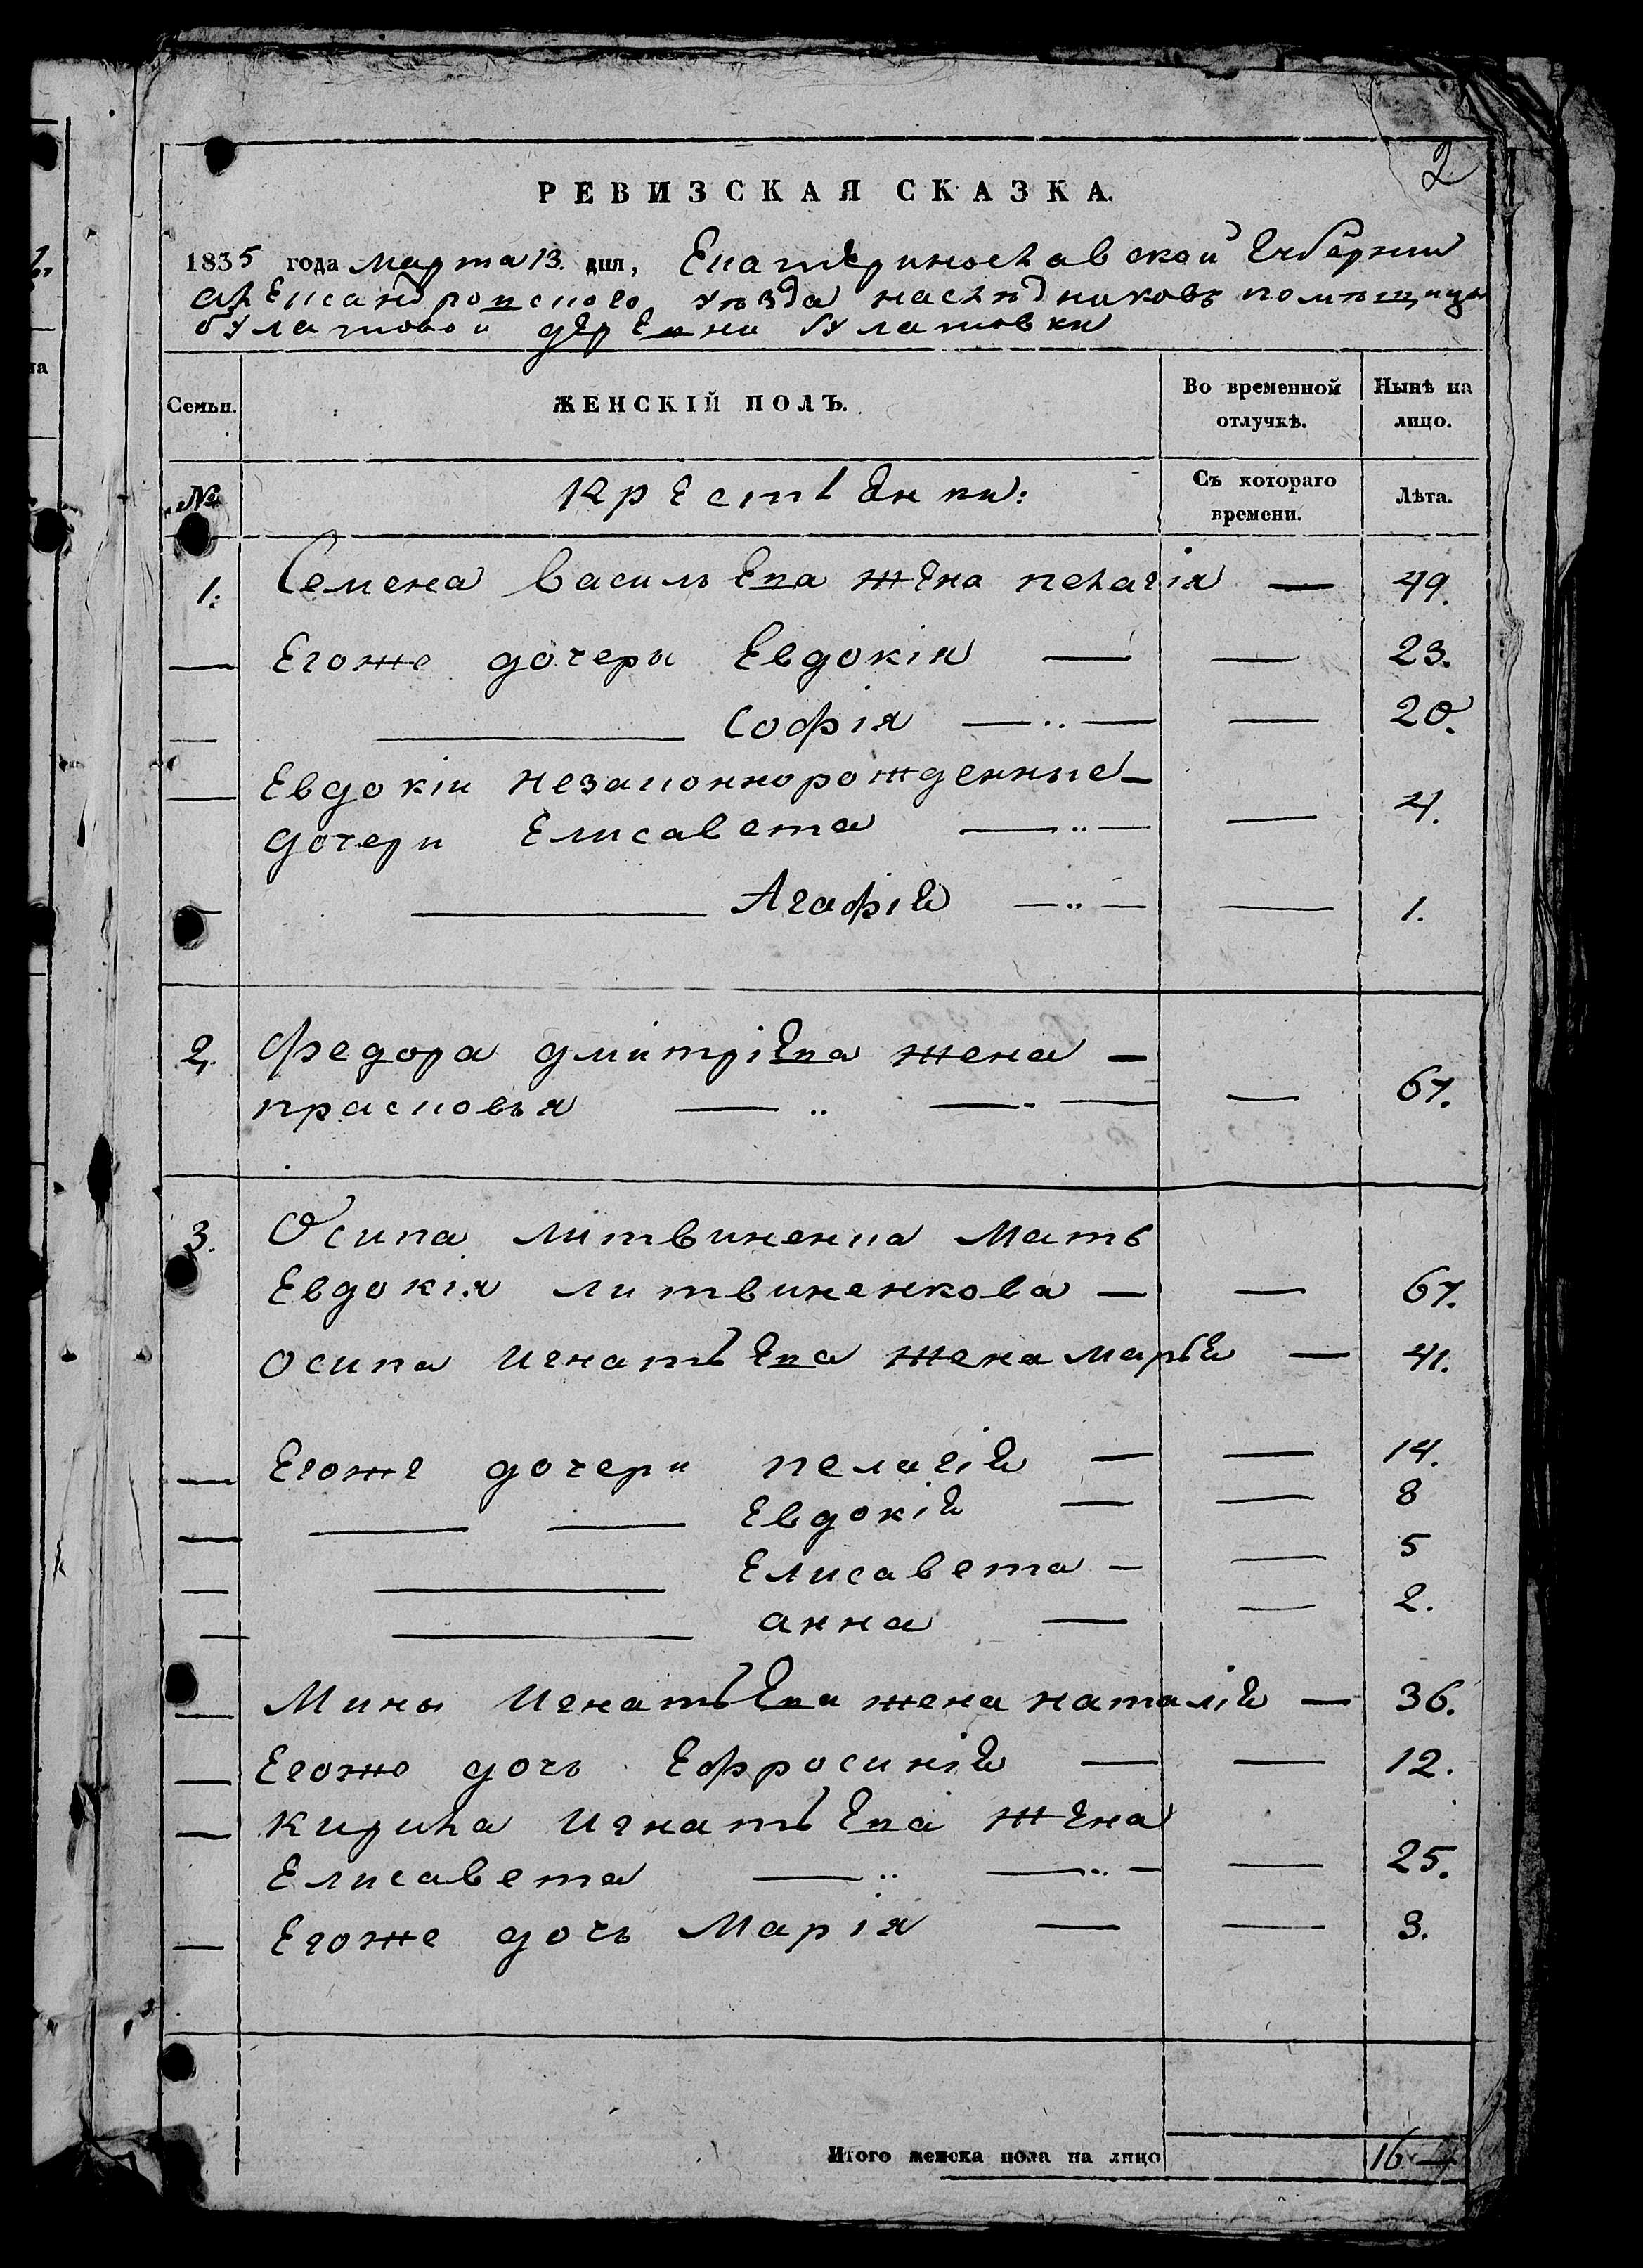 2
РЕВИЗСКАЯ СКАЗКА.
1835 года марта 13. дня, Екатеринославской Губернии
Александровского уѣзда наслѣдниковъ помѣщицы
булатовой деревни булатовки
Семьи. ЖЕНСКІЙ ПОЛЪ. Во временной отлучкѣ. Нынѣ на лицо.
№ Крестьянки: Съ котораго времени. Лѣта.
1. Семена васильева жена пелагія — 49.
— Егоже дочери Евдокія — — 23.
— —— Софія — — 20.
— Евдокіи незаконнорожденные
дочери Елисавета — — 4.
— —— Агафія — — 1.
2. федора дмитріева жена —
прасковья — — — 67.
3. Осипа литвиненка мать
Евдокія литвиненкова — — 67.
осипа игнатьева жена марья — 41.
— Егоже дочери пелагія — — 14.
— — — Евдокія — — 8
— —— Елисавета — — 5
— —— анна — — 2.
— Мины игнатьева жена наталія — 36.
— Егоже дочь Ефросинія — — 12.
— кирила игнатьева жена
Елисавета — — — 25.
— Егоже дочь Марія — — 3.
Итого женска пола на лицо 16